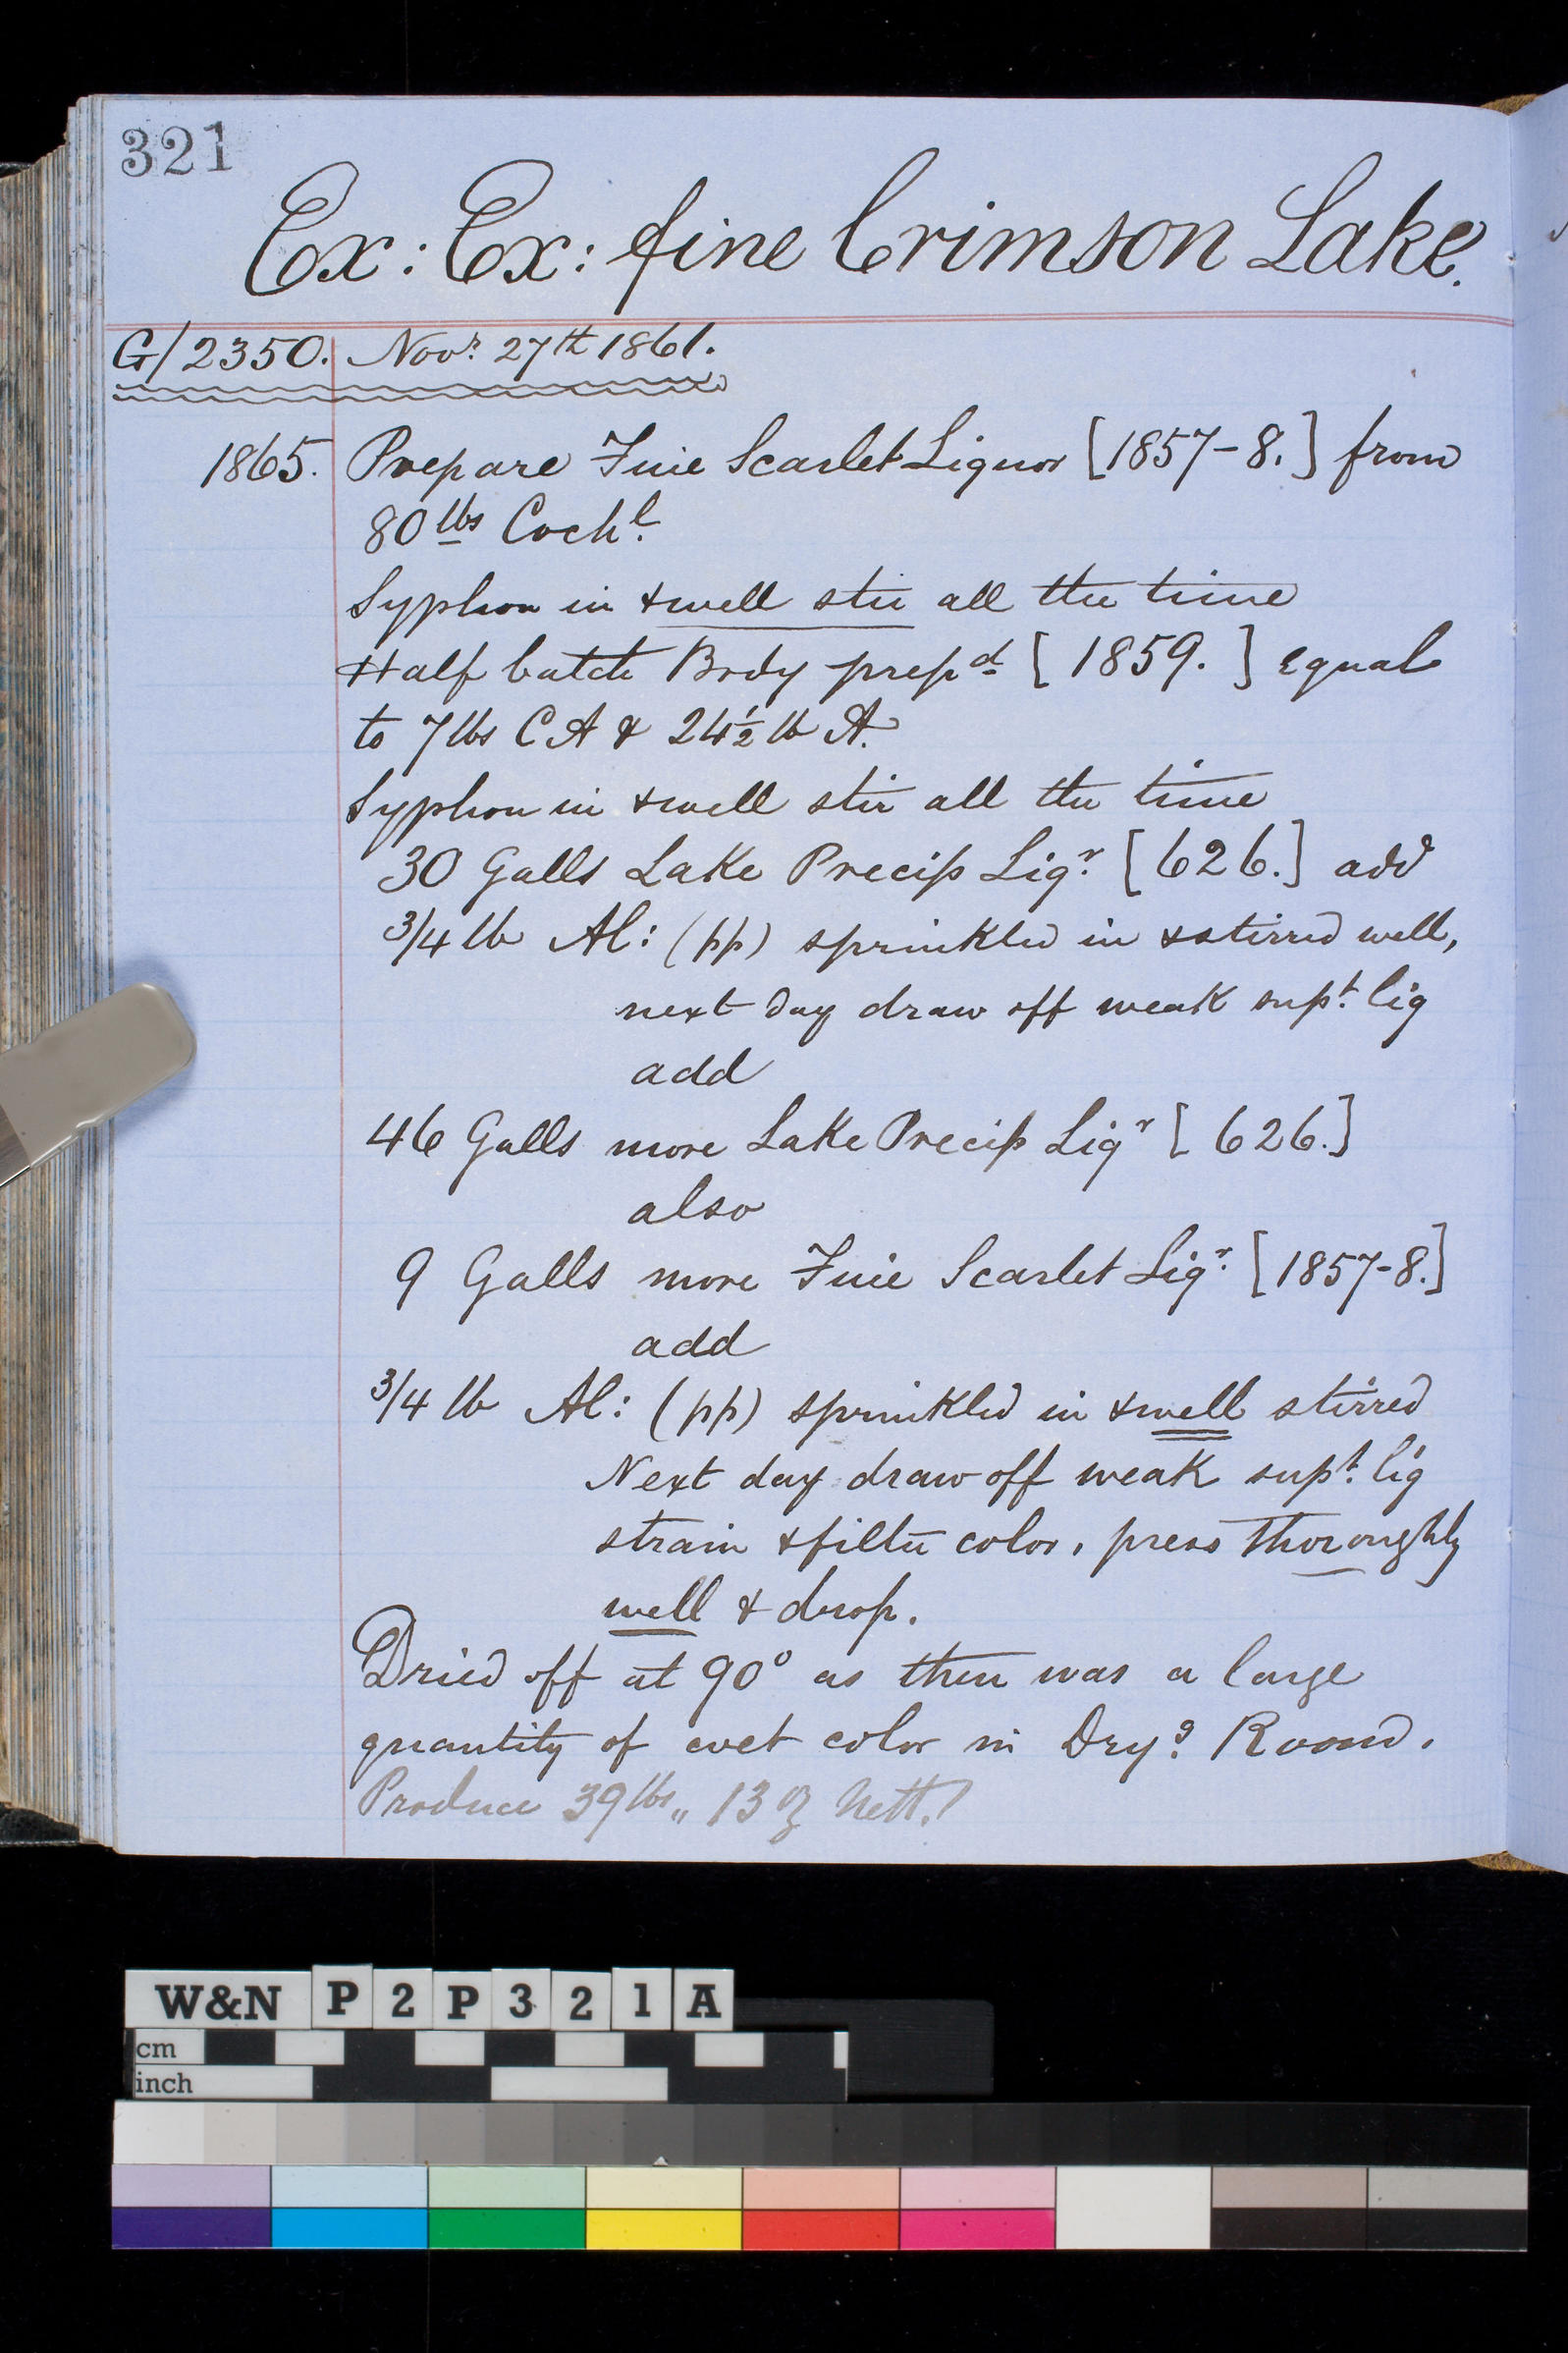 321
Ex: Ex: fine Crimson Lake.
G/2350. Novr. 27th 1861.
1865. Prepare Fine Scarlet Liquor [1857-8.] from
80 lbs Cochl.
Syphon in & well stir all the time
Half batch Body prepd [1859.] equal
to 7 lbs C A & 24½ lb A.
Syphon in & well stir all the time
30 Galls Lake Precip Liqr. [626.] add
3/4 lb Al: (pp) sprinkled in & stirred well,
next day draw off weak supt. liq
add
46 Galls more Lake Precip Liqr [626.]
also
9 Galls more Fine Scarlet Liqr. [1857-8.]
add
3/4 lb Al: (pp) sprinkled in & well stirred
Next day draw off weak supt. liq
strain & filter color, press thoroughly
well & drop.
Dried off at 90° as there was a large
quantity of wet color in Dryg. Room.
Produce 39 lbs,, 13 oz Nett.
W&N P2P321A
cm
inch